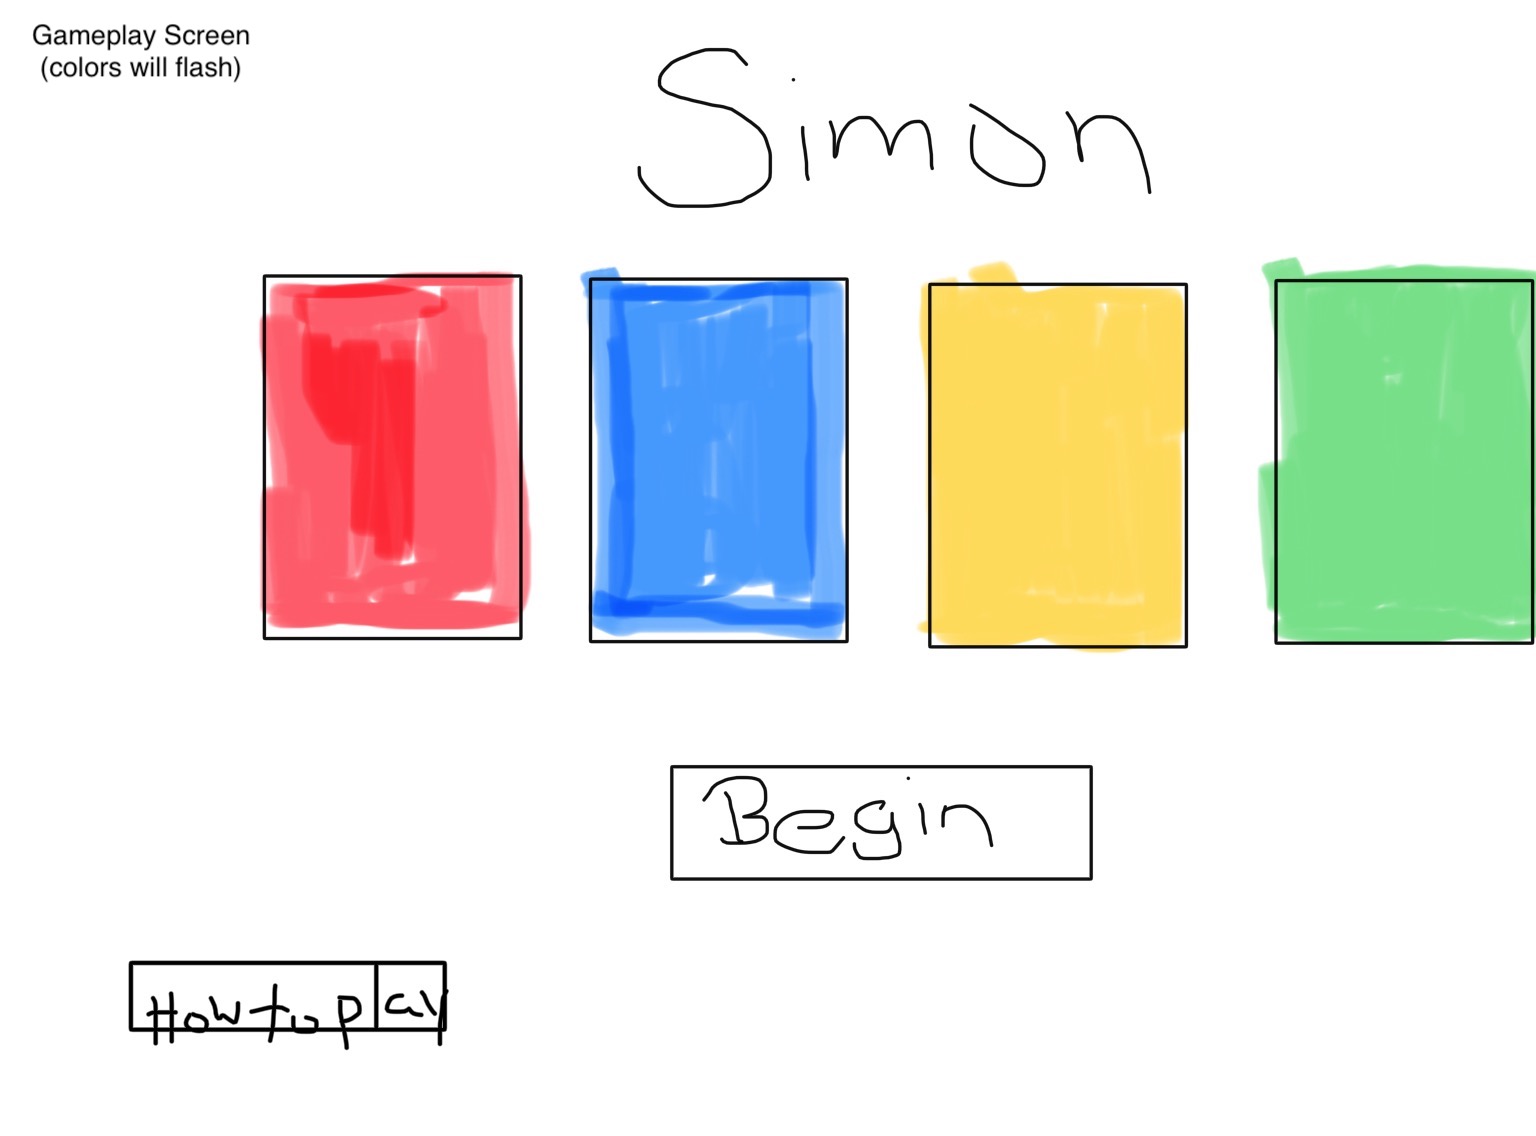 Gameplay Screen
(colors will flash)
Simon
Begin
How to play